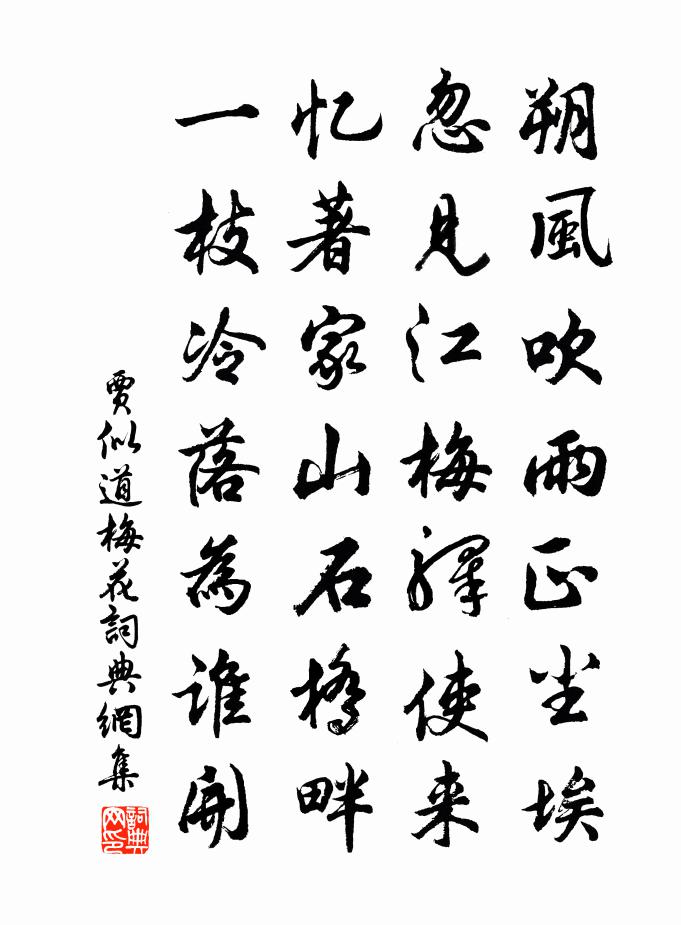 朔風吹雨正尘埃
忽見江梅驛使来
忆著家山石橋畔
一枝冷落為誰開
賈似道梅花詞典網集
詞典网印